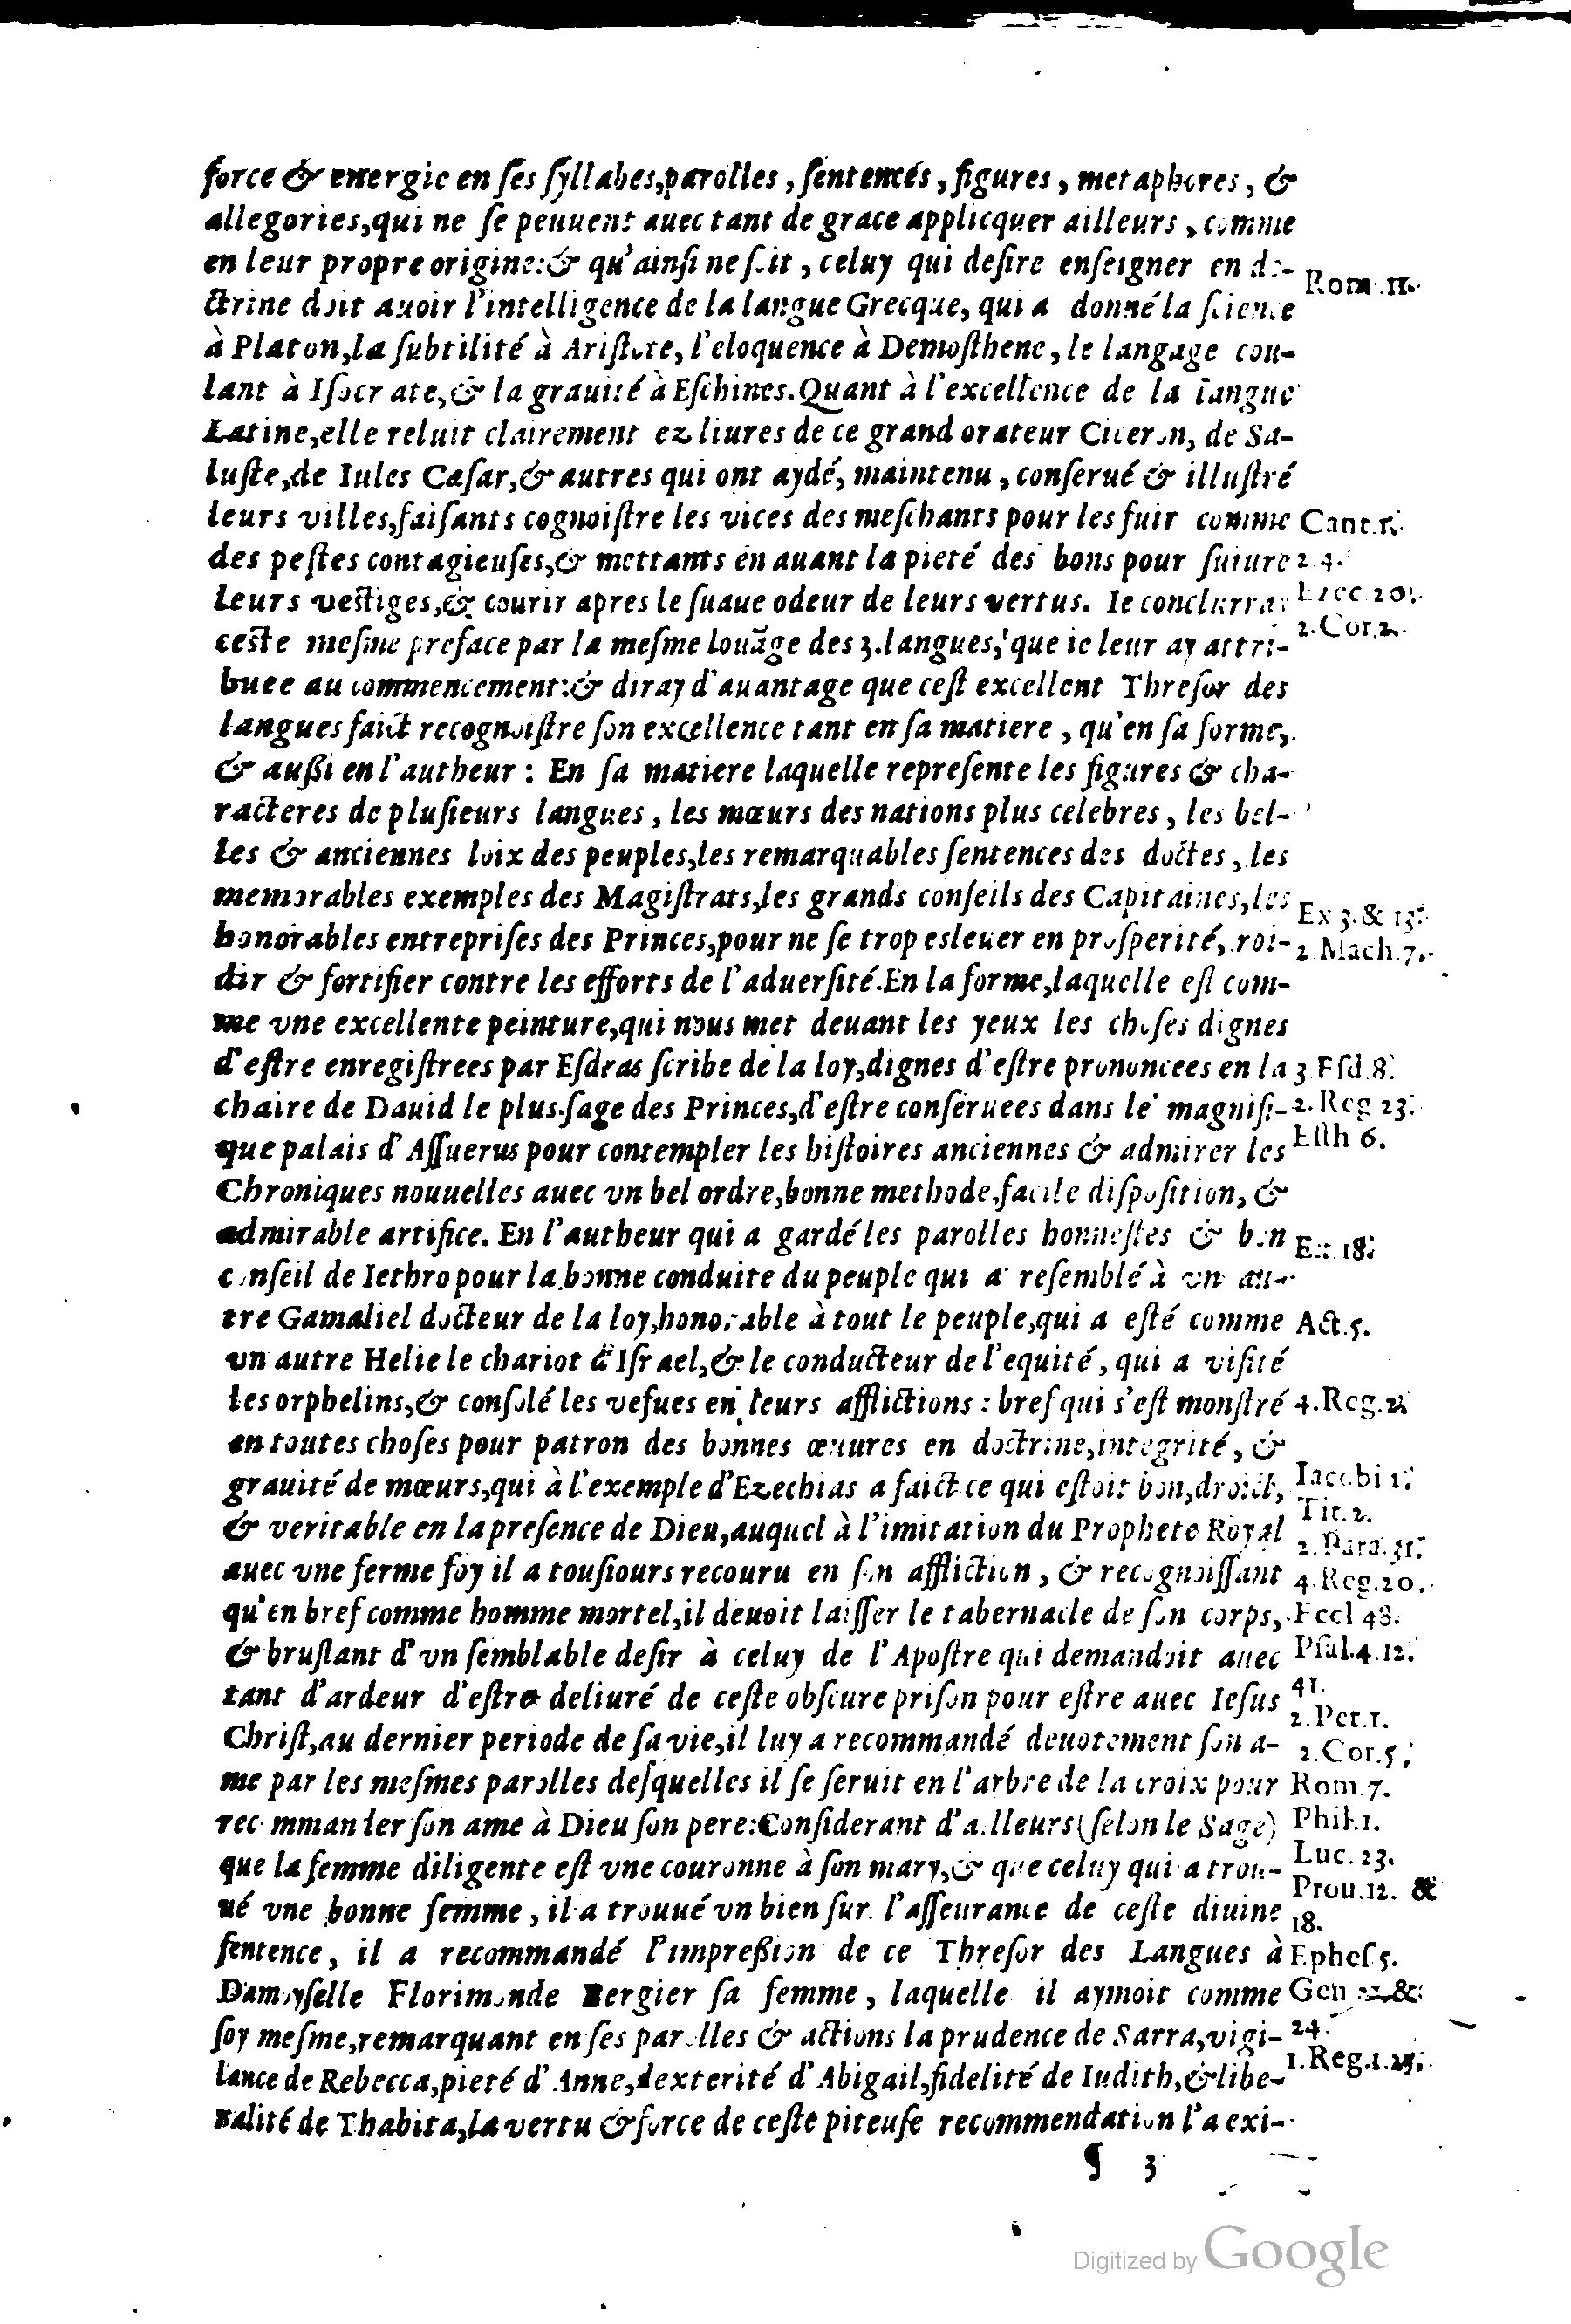 force & energie en ses syllabes, parolles, sentences, figures, metaphores, &
allegories, qui ne se peuuent auec tant de grace applicquer ailleurs, comme
en leur propre origine: & qu'ainsi ne soit, celuy qui desire enseigner en do-
Rom. 11.
ctrine doit auoir l'intelligence de la langue Grecque, qui a donné la science
à Platon, la subtilité à Aristote, l'eloquence à Demosthene, le langage cou-
lant à Isocrate, & la grauité à Eschines. Quant à l'excellence de la langue
Latine, elle reluit clairement ez liures de ce grand orateur Ciceron, de Sa-
luste, de Iules Cæsar, & autres qui ont aydé, maintenu, conserué & illustré
leurs villes, faisants cognoistre les vices des meschants pour les fuir comme
Cant. 1.
des pestes contagieuses, & mettants en auant la pieté des bons pour suiure
2. 4.
leurs vestiges, & courir apres le suaue odeur de leurs vertus. Ie conclurray
Ezec. 20.
ceste mesme preface par la mesme louãge des 3. langues, que ie leur ay attri-
2. Cor. 2.
buee au commencement: & diray d'auantage que cest excellent Thresor des
langues faict recognoistre son excellence tant en sa matiere, qu'en sa forme,
& aussi en l'autheur: En sa matiere laquelle represente les figures & cha-
racteres de plusieurs langues, les mœurs des nations plus celebres, les bel-
les & anciennes loix des peuples, les remarquables sentences des doctes, les
memorables exemples des Magistrats, les grands conseils des Capitaines, les
Ex 3. & 13.
honorables entreprises des Princes, pour ne se trop esleuer en prosperité, roi-
2. Mach. 7.
dir & fortifier contre les efforts de l'aduersité. En la forme, laquelle est com-
me vne excellente peinture, qui nous met deuant les yeux les choses dignes
d'estre enregistrees par Esdras scribe de la loy, dignes d'estre prononcees en la
3. Esd. 8.
chaire de Dauid le plus sage des Princes, d'estre conseruees dans le magnifi-
2. Reg 23.
que palais d'Assuerus pour contempler les histoires anciennes & admirer les
Esth 6.
Chroniques nouuelles auec vn bel ordre, bonne methode, facile disposition, &
admirable artifice. En l'autheur qui a gardé les parolles honnestes & bon
Ex. 18.
conseil de Iethro pour la bonne conduite du peuple qui a resemblé à vn au-
tre Gamaliel docteur de la loy, honorable à tout le peuple, qui a esté comme
Act. 5.
vn autre Helie le chariot d'Israel, & le conducteur de l'equité, qui a visité
les orphelins, & consolé les vefues en leurs afflictions: bref qui s'est monstré
4. Reg. 2.
en toutes choses pour patron des bonnes œuures en doctrine, integrité, &
grauité de mœurs, qui à l'exemple d'Ezechias a faict ce qui estoit bon, droict,
Iacobi 1.
Tit. 2.
& veritable en la presence de Dieu, auquel à l'imitation du Prophete Royal
2. Para. 31.
auec vne ferme foy il a tousiours recouru en son affliction, & recognoissant
4. Reg. 20.
qu'en bref comme homme mortel, il deuoit laisser le tabernacle de son corps,
Eccl 48.
& bruslant d'vn semblable desir à celuy de l'Apostre qui demandoit auec
Psal. 4. 12.
tant d'ardeur d'estre deliuré de ceste obscure prison pour estre auec Iesus
41.
2. Pet. 1.
Christ, au dernier periode de sa vie, il luy a recommandé deuotement son a-
2. Cor. 5.
me par les mesmes parolles desquelles il se seruit en l'arbre de la croix pour
Rom. 7.
recommander son ame à Dieu son pere: Considerant d'ailleurs (selon le Sage)
Phil. 1.
que la femme diligente est vne couronne à son mary, & que celuy qui a trou-
Luc. 23.
ué vne bonne femme, il a trouué vn bien sur l'asseurance de ceste diuine
Prou. 12. &
18.
sentence, il a recommandé l'impression de ce Thresor des Langues à
Ephes 5.
Damoyselle Florimonde Bergier sa femme, laquelle il aymoit comme
Gen &
soy mesme, remarquant en ses parolles & actions la prudence de Sarra, vigi-
24.
lance de Rebecca, pieté d'Anne, dexterité d'Abigail, fidelité de Iudith, & libe-
1. Reg. 1. 25.
ralité de Thabita, la vertu & force de ceste piteuse recommendation l'a exi-
¶ 3
Digitized by Google